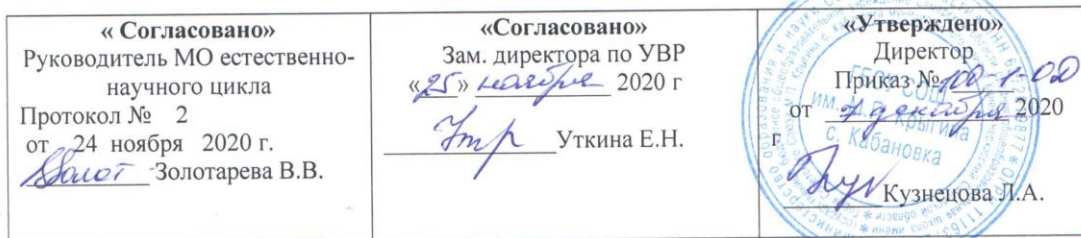 « Согласовано»
Руководитель МО естественно-
научного цикла
Протокол № 2
от 24 ноября 2020 г.
Золотарева В.В.
«Согласовано»
Зам. директора по УВР
«25» ноября 2020 г
Уткина Е.Н.
«Утверждено»
Директор
Приказ № 100-1-ОД
от 7 декабря 2020
г
Кузнецова Л.А.
СОШ
им. М.П. Крыгина
с. Кабановка